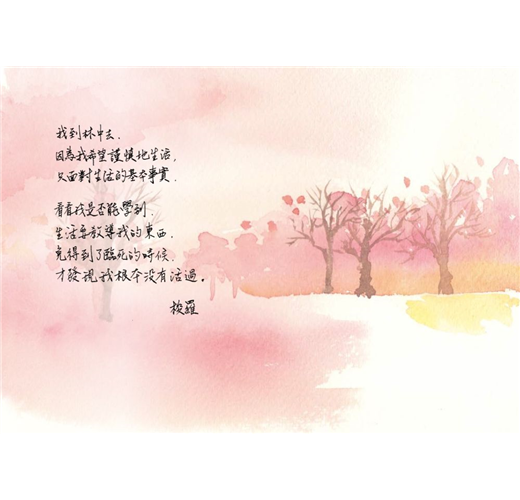 我到林中去，
因為我希望謹慎地生活，
只面對生活的基本事實，
看看我是否能學到，
生活要教導我的東西，
免得到了臨死的時候，
才發現我根本沒有活過。
梭羅